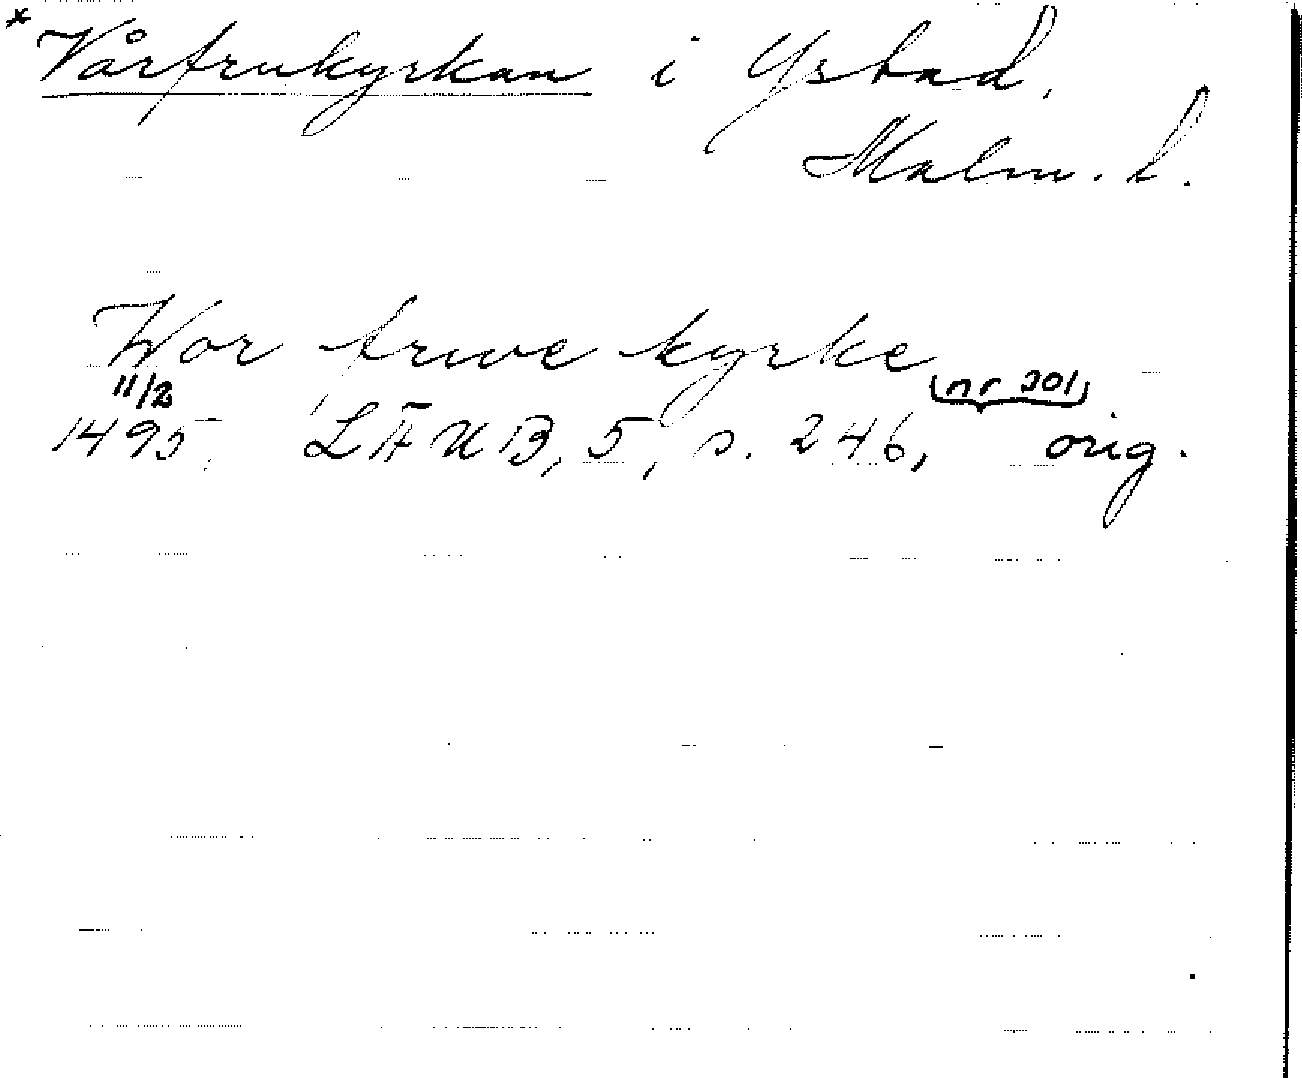 * Vårfrukyrkan i Ystad,
Malm. l.
Wor frwe kyrke
11/2 nr 301
1495. LÄUB, 5, s. 246, orig.